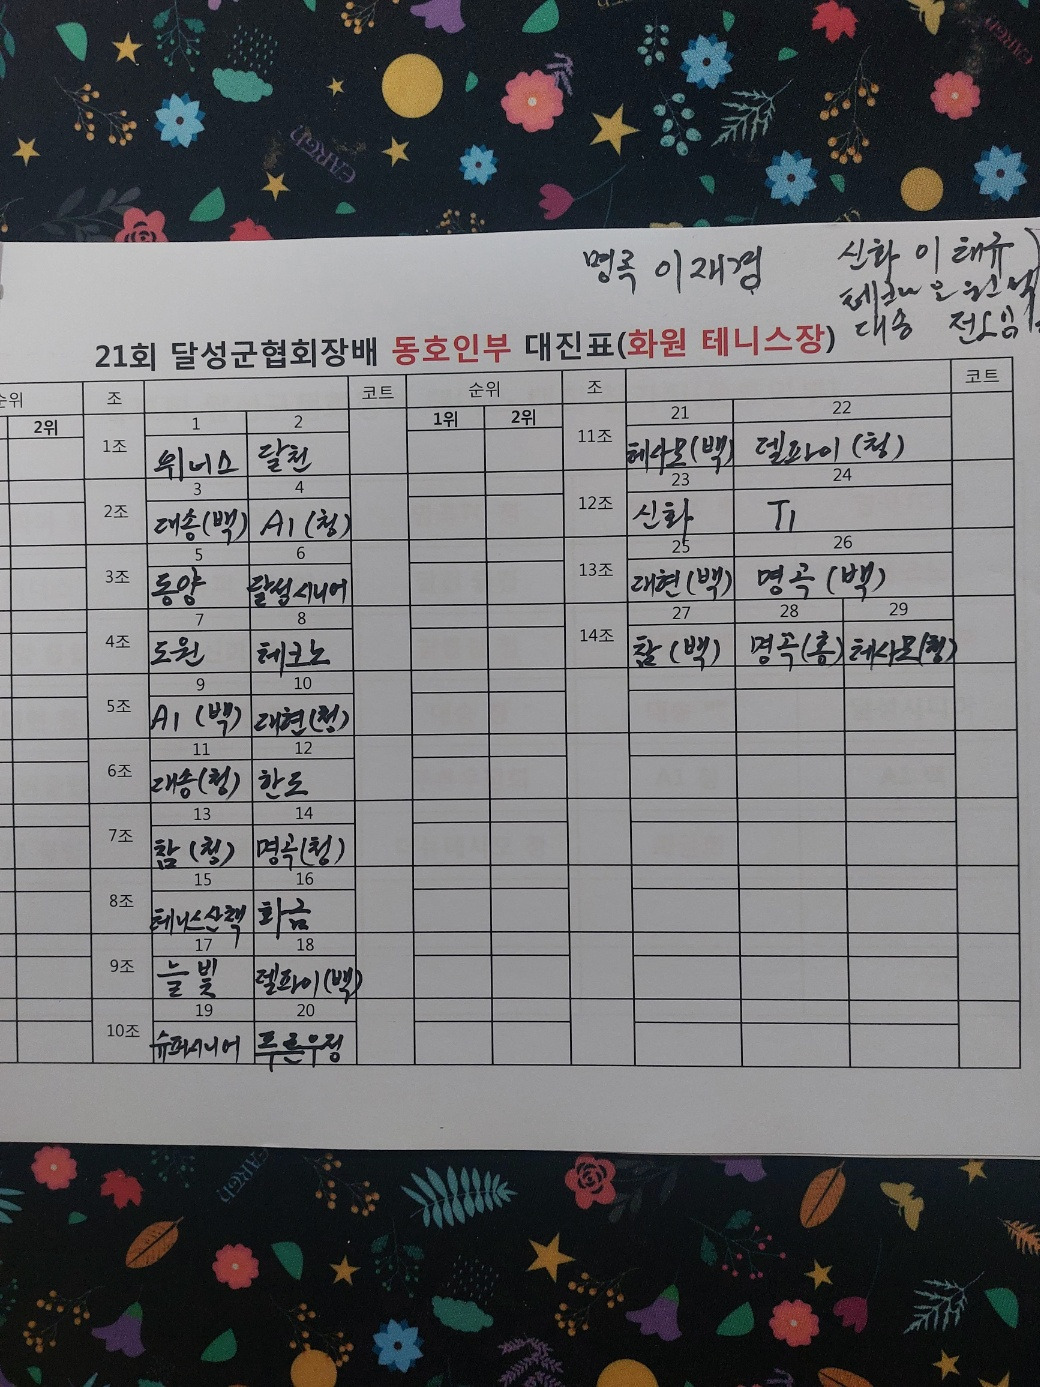 명곡 이재경
신화 이태규
대송
21회 달성군협회장배 동호인부 대진표(화원 테니스장)
순위 조 코트 순위 조 코트
2위 1위 2위
1조 1 2
위너스 달천
2조 3 4
대송(백) A1 (청)
3조 5 6
동양 달성시니어
4조 7 8
도원 테크노
5조 9 10
A1 (백) 대현(청)
6조 11 12
대송(청) 한도
7조 13 14
참 (청) 명곡(청)
8조 15 16
테니스산책 화금
9조 17 18
늘빛 델파이(백)
10조 19 20
슈퍼시니어 푸른우정
11조 21 22
테사모(백) 델파이 (청)
12조 23 24
신화 T1
13조 25 26
대현(백) 명곡 (백)
14조 27 28 29
참 (백) 명곡(홍) 테사모(청)